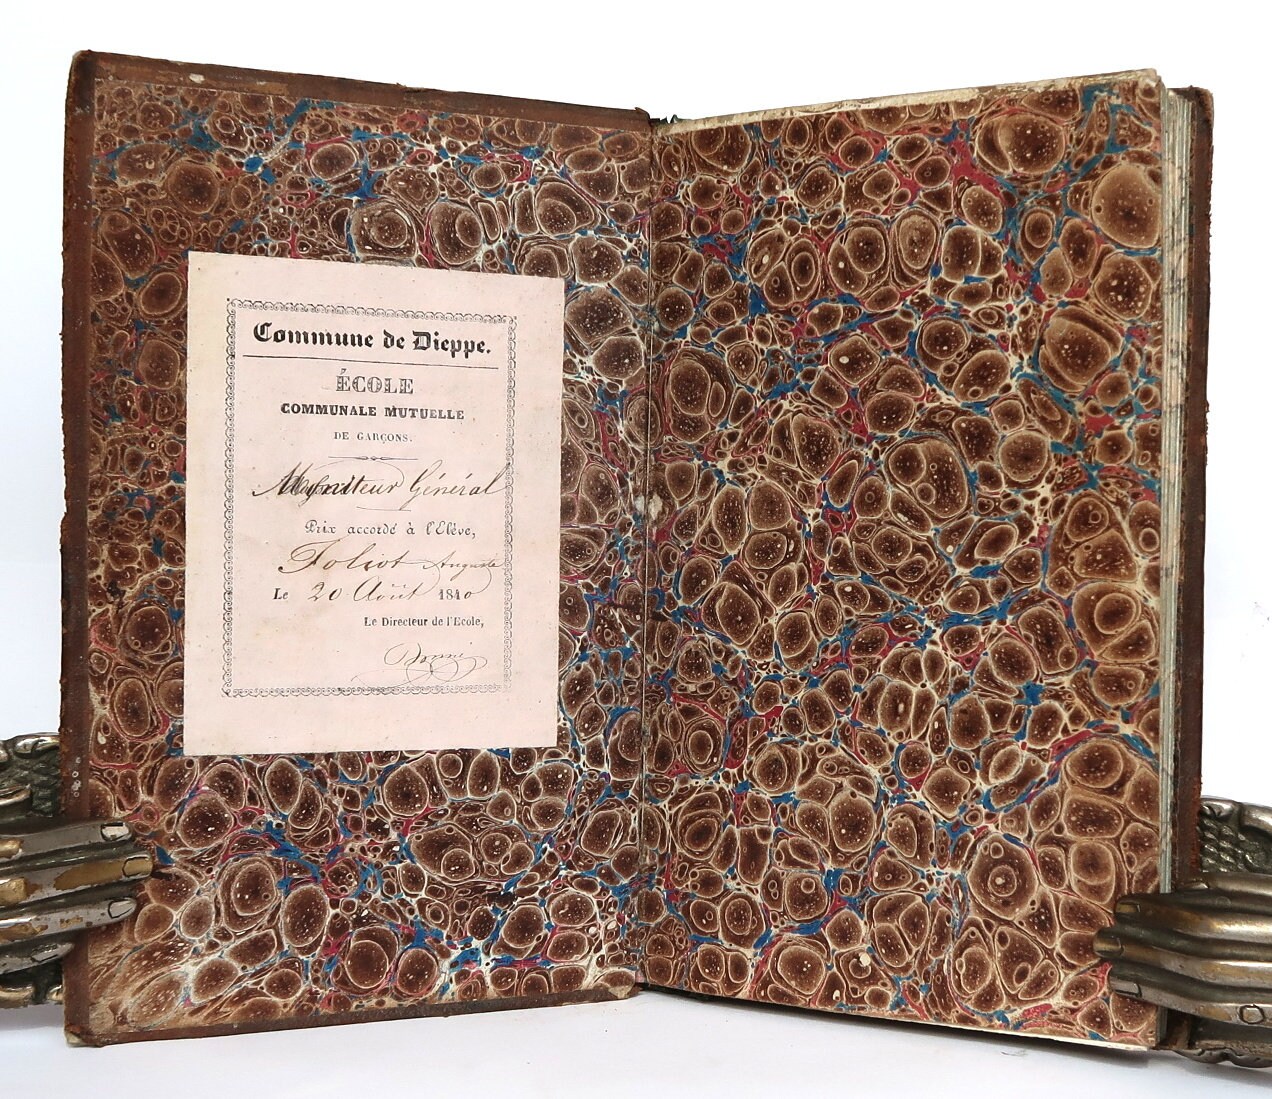 Commune de Dieppe.
ÉCOLE
COMMUNALE MUTUELLE
DE GARÇONS.
Moniteur Général
Prix accordé à l'Elève,
Foliot Auguste
Le 20 Août 1840
Le Directeur de l'Ecole,